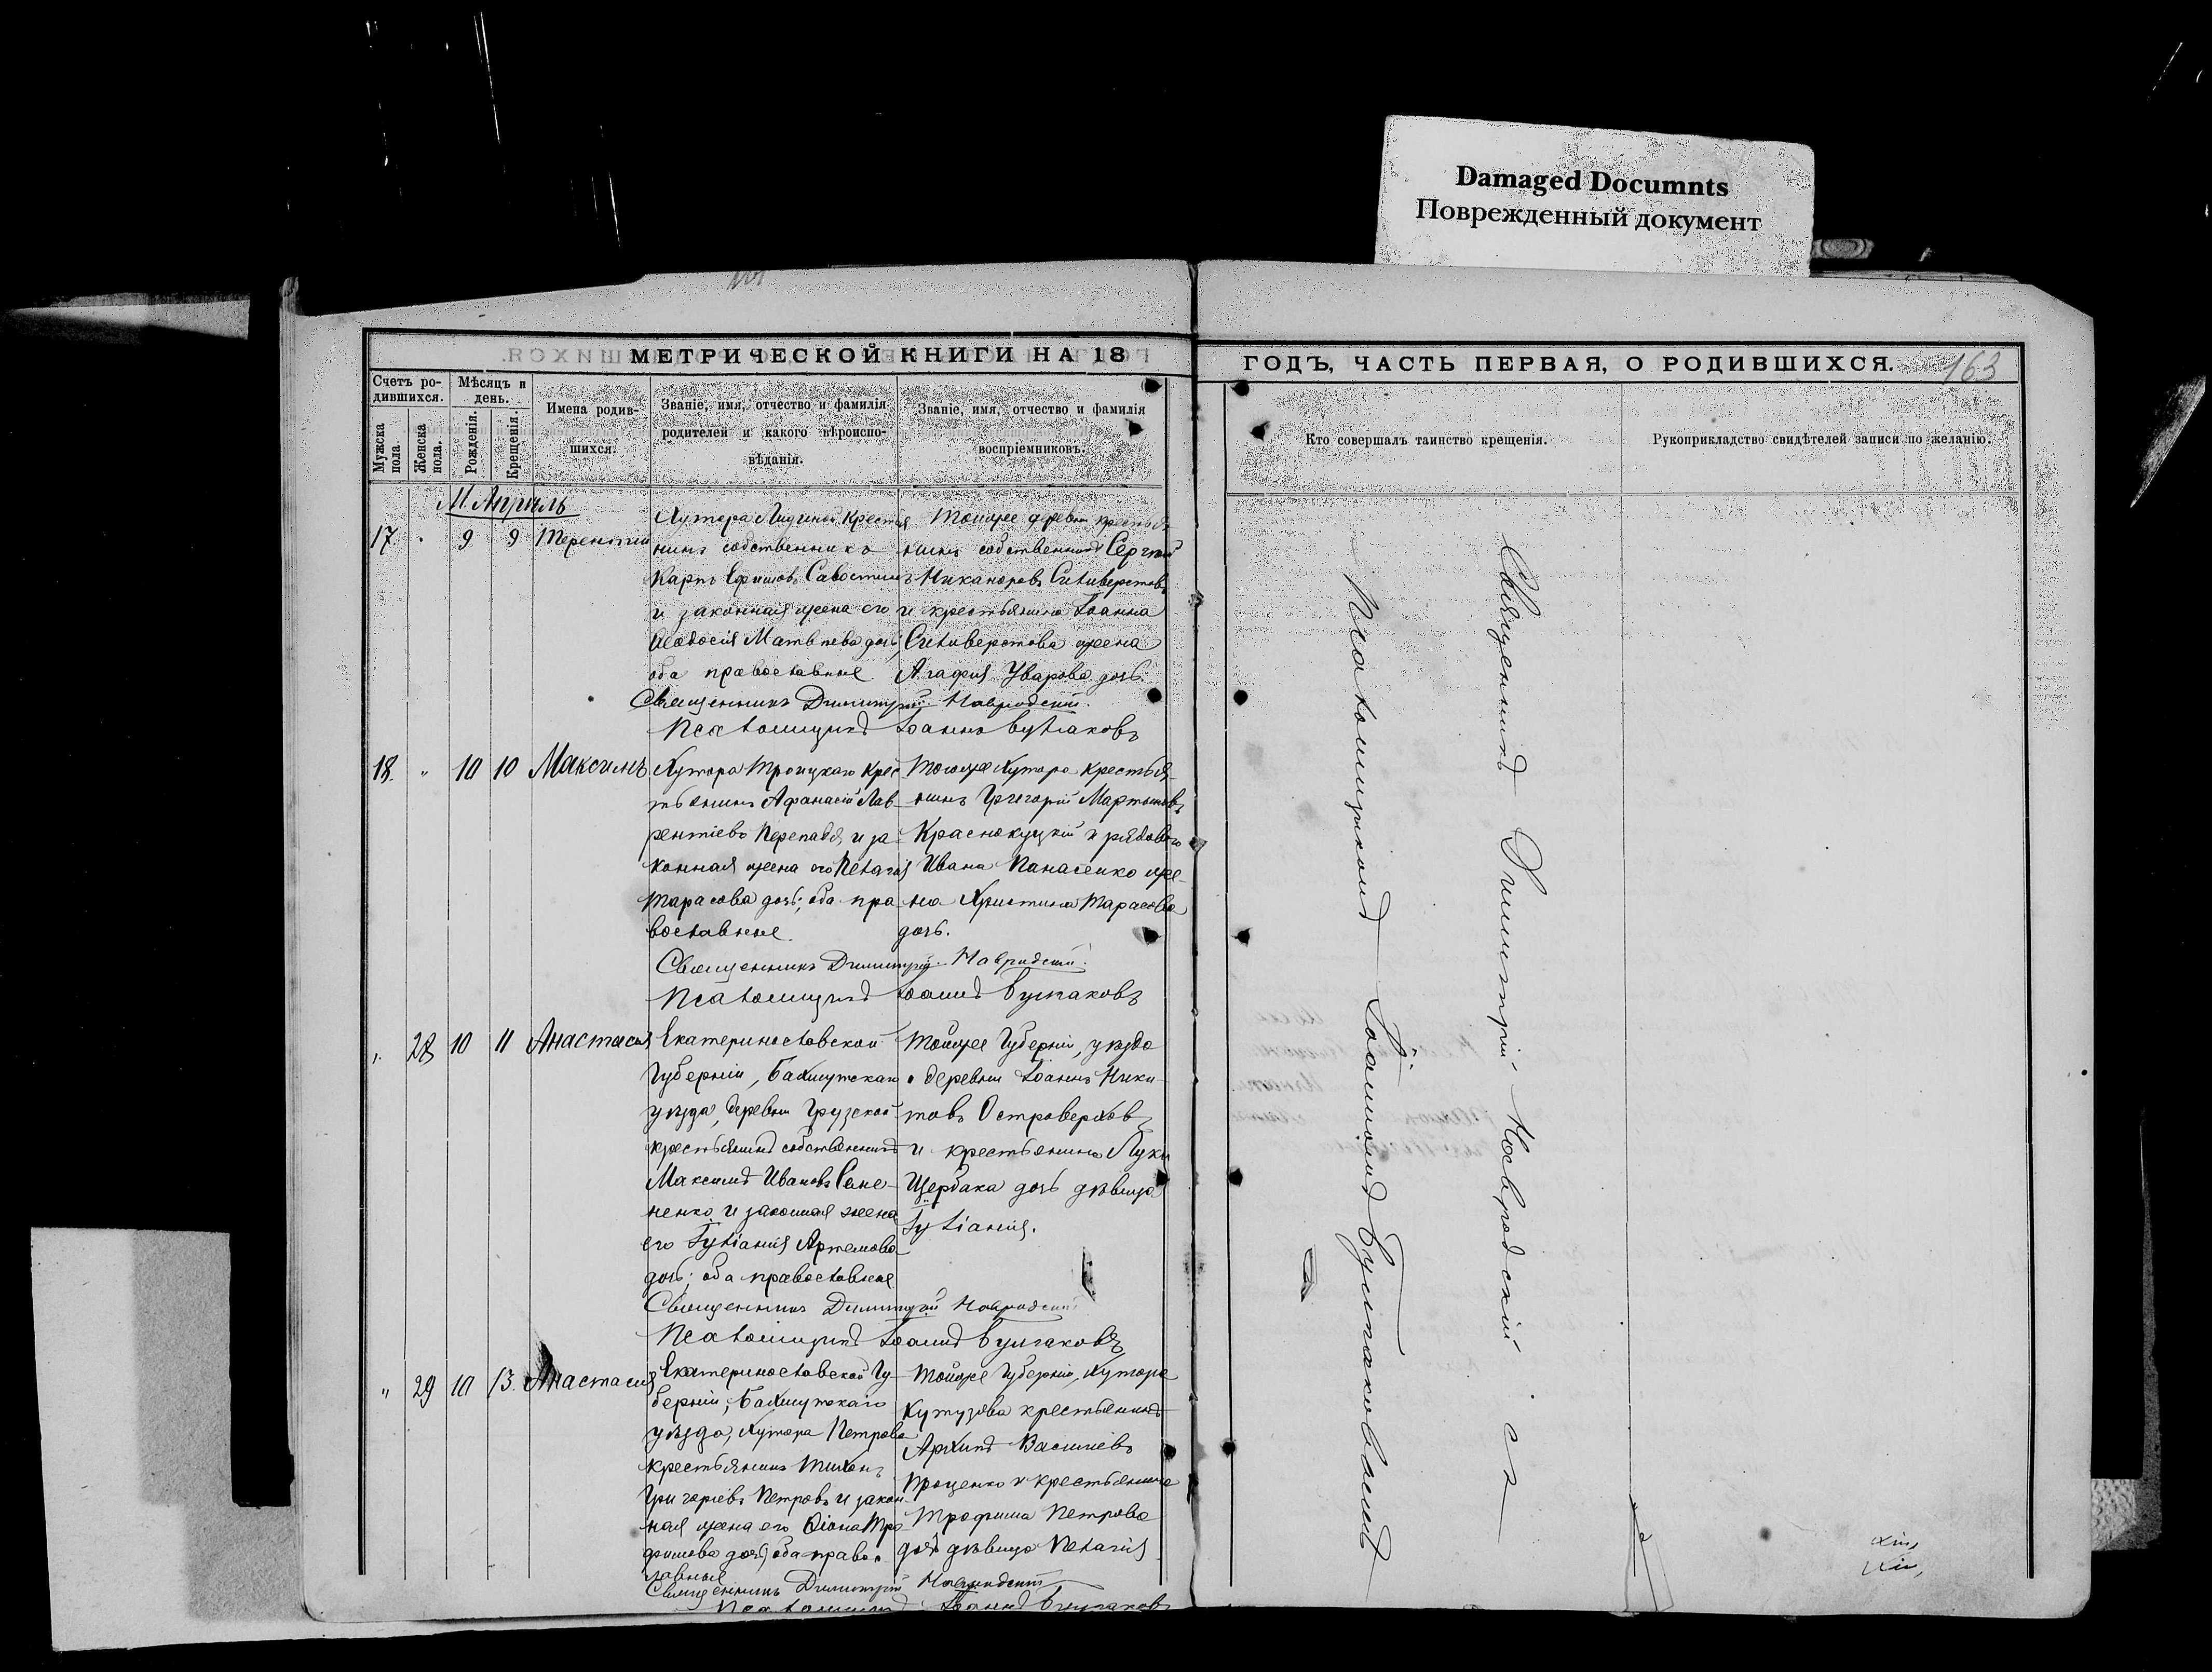 Damaged Documnts
Поврежденный документ
МЕТРИЧЕСКОЙ КНИГИ НА 18
ГОДЪ, ЧАСТЬ ПЕРВАЯ, О РОДИВШИХСЯ.
163
Счетъ ро-
дившихся.
Мужска
пола.
Женска
пола.
Мѣсяцъ и
день.
Рожденія.
Крещенія.
Имена родив-
шихся.
Званіе, имя, отчество и фамилія
родителей и какого вѣроиспо-
вѣданія.
Званіе, имя, отчество и фамилія
воспріемниковъ.
Кто совершалъ таинство крещенія.
Рукоприкладство свидѣтелей записи по желанію.
М. Апрѣль
17. 9 9 Терентій
Хутора крестья
нинъ собственникъ
Карпъ Ефимовъ Савостинъ
и законная жена его
Ѳеодосія Матвѣева дочь,
оба православные
Тойже деревни крестья
нинъ собственникъ Сергѣй
Никаноровъ Силиверстовъ
и крестьянина Іоанна
Силиверстова жена
Агафія Уварова дочь.
Священникъ Димитрій Навродскій.
Псаломщикъ Іоаннъ Булгаковъ
18. " 10 10 Максимъ
Хутора Троицкаго крес
тьянинъ Афанасій Лав-
рентіевъ и за
конная жена его Пелагія
Тарасова дочь; оба пра
вославные.
Тогоже Хутора крестья-
нинъ Григорій Мартыновъ
Краснокуцкій и рядового
Ивана Панасенко же-
на Христина Тарасова
дочь.
Священникъ Димитрій Навродскій.
Псаломщикъ Іоаннъ Булгаковъ
" 28 10 11 Анастасія
Екатеринославской
Губерніи, Бахмутскаго
уѣзда, деревни Грузской
крестьянинъ собственникъ
Максимъ Ивановъ Сане-
ненко и законная жена
его Іуліанія Артемова
дочь; оба православные
Тойже Губерніи, уѣзда
и деревни Іоаннъ Ники-
товъ Островерховъ
и крестьянина Луки
Щербака дочь дѣвица
Іуліанія.
Священникъ Димитрій Навродскій
Псаломщикъ Іоаннъ Булгаковъ
" 29 10 13. Анастасія
Екатеринославской Гу
берніи, Бахмутскаго
уѣзда, Хутора Петрова
крестьянинъ Тихонъ
Григоріевъ Петровъ и закон
ная жена его Тро
фимова дочь; оба правос
лавные
Тойже Губерніи, Хутора
Кутузова крестьянинъ
Архипъ Василіевъ
Проценко и крестьянина
Трофима Петрова
дочь дѣвица Пелагія
Священникъ Димитрій Навродскій
Псаломщикъ Іоаннъ Булгаковъ
Священникъ Димитрій Навродскій
Псаломщикъ Іоаннъ Булгаковъ